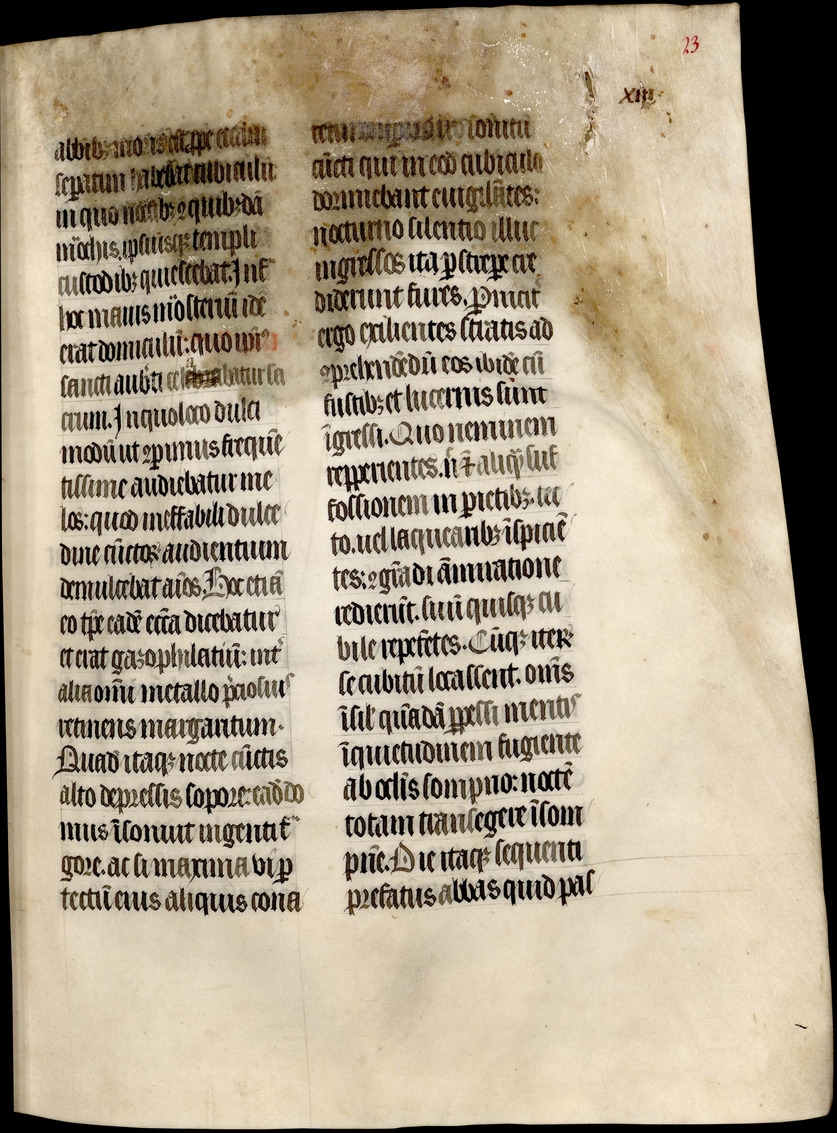 23
XIII
abbib;
sepatim habebat cubiculū
in quo noctib; ꝯ quib;dā
mōchis, ipsiusq; templi
custodib; quiescebat. Int̾
hoc mauis mōsteriū idē
erat domiciliū: quo
sancti aubti celabatur sa
crum. In quo loco dulci
modū ut ꝯpimus freque̅
tissime audiebatur me
los: quod ineffabili dulce
dine cūctos audientium
demulcebat aīos. Hoc etiā
eo tp̄e eadē eccīa dicebatur
et erat gazophilatiū: int̾
alia omī metallo p̄ciosius
retinens margaritum.
Quad itaq; nocte cūctis
alto depressis sopore: ead̄ do
mus īsonuit ingenti f̾
gore. ac si maxima vi ꝑ
tectū eius aliquis cona
retur sonitu
cūcti qui in eod̄ cubiculo
dormiebant euigilātes:
nocturno silentio illuc
ingressos ita ꝑstrepe cre
diderunt fures. Pnicit̾
ergo exilientes stratis ad
ꝯprehendēdū eos ibidē cū
fustib; et lucernis sunt
īgressi. Quo neminem
repperientes. n̄ ⁊ aliq̄ suf
fossionem in pietib; tec
to. uel laquearib; īspiciē
tes: ꝯ gradi āmiratione
redierūt. suū quisq; cu
bile repetētes. Cūq; iter
se cubitū locassent. omīs
īsil' quādā ꝑpessi mentis
īquietudinem fugiente
ab oclīs sompno: noctē
totam transegere īsom
pnē. Die itaq; sequenti
prefatus abbas quid pas